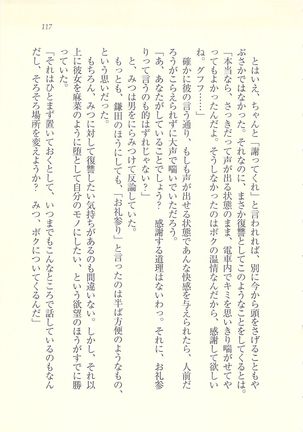 117
とはいえ、ちゃんと「謝ってくれ」と言われれば、別に今から頭をさげることもや
ぶさかではなかった。それなのに、まさか復讐としてこのようなことをしてくるとは。
「本当なら、さっきだって声が出せる状態のまま、電車内でキミを思いきり喘がせてや
ってもよかったんだよ。そうしなかったのはボクの温情なんだから、感謝して欲しい
ね。グフフ……」
確かに彼の言う通り、もしも声が出せる状態であんな快感を与えられたら、人前だ
ろうがこらえられずに大声で喘いでいただろう。
「あ、あなたがしていることでしょう？　感謝する道理はないわっ。それに、お礼参
りって言うのも的はずれじゃない？」
と、みつは男をにらみつけて反論していた。
もっとも、鎌田のほうにしても、「お礼参り」と言ったのは半ば方便のようなもの、
という思いだった。
もちろん、みつに対して復讐したい気持ちがあるのも間違いない。しかし、それ以
上に彼女を麻菜のように堕として自分のモノにしたい、という欲望のほうがすでに勝
っていた。
「それはひとまず置いておくとして、いつまでもこんなところで話しているのもなん
だし、そろそろ場所を変えようか？　みつ、ボクについてくるんだ」